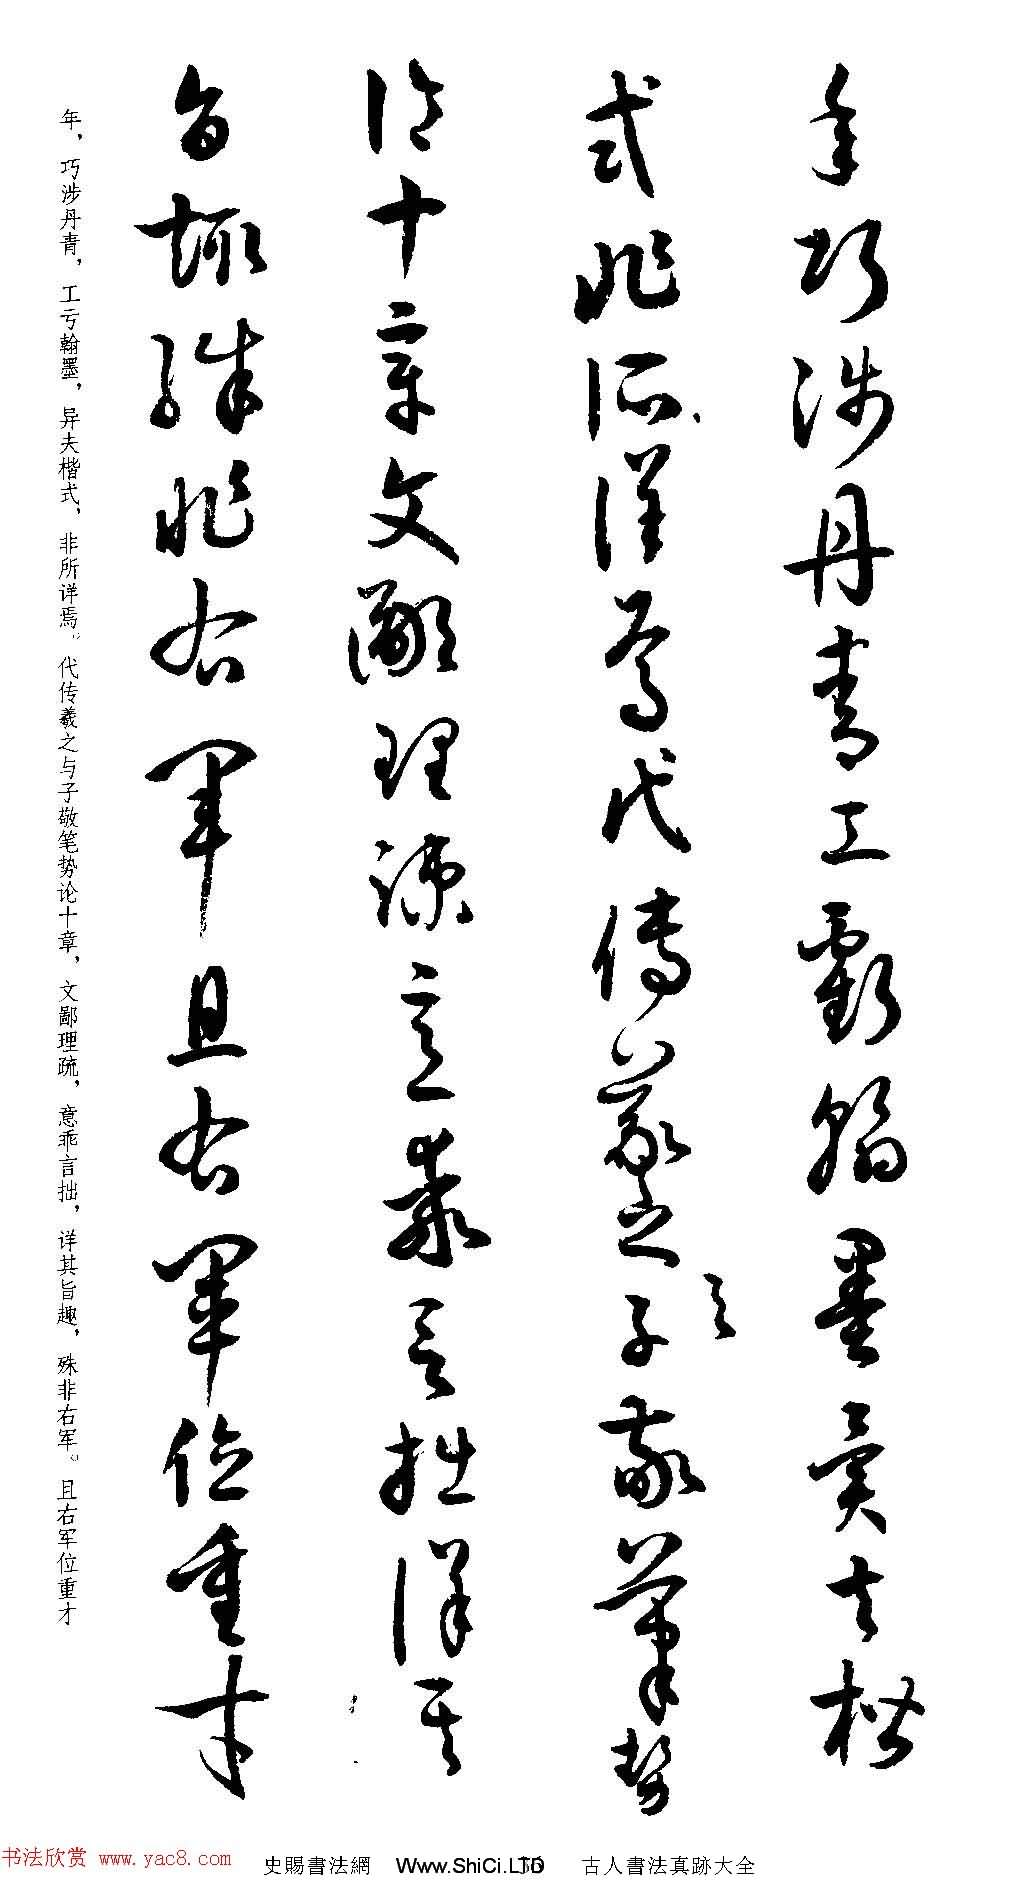 年巧涉丹青工虧翰墨異夫楷
式非所詳焉代傳羲之与子敬筆勢
論十章文鄙理疎意乖言拙詳其
旨趣殊非右軍且右軍位重才
年，巧涉丹青，工亏翰墨，异夫楷式，非所详焉。代传羲之与子敬笔势论十章，文鄙理疏，意乖言拙，详其旨趣，殊非右军。且右军位重才
书法欣赏 www.yac8.com
史賜書法網 Www.ShiCi.LTD 古人書法真跡大全